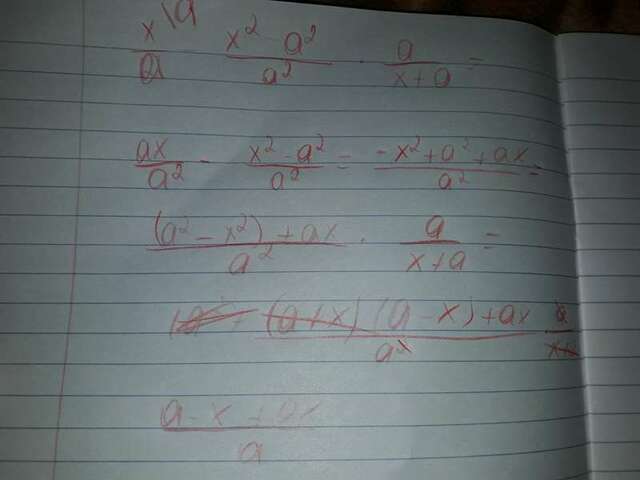 x/a \a x² - a²/a² · a/x+a =
ax/a² - x² - a²/a² = -x² + a² + ax/a² =
(a² - x²) + ax/a² · a/x+a =
(a + x) (a - x) + ax/a²
a - x + ax/a